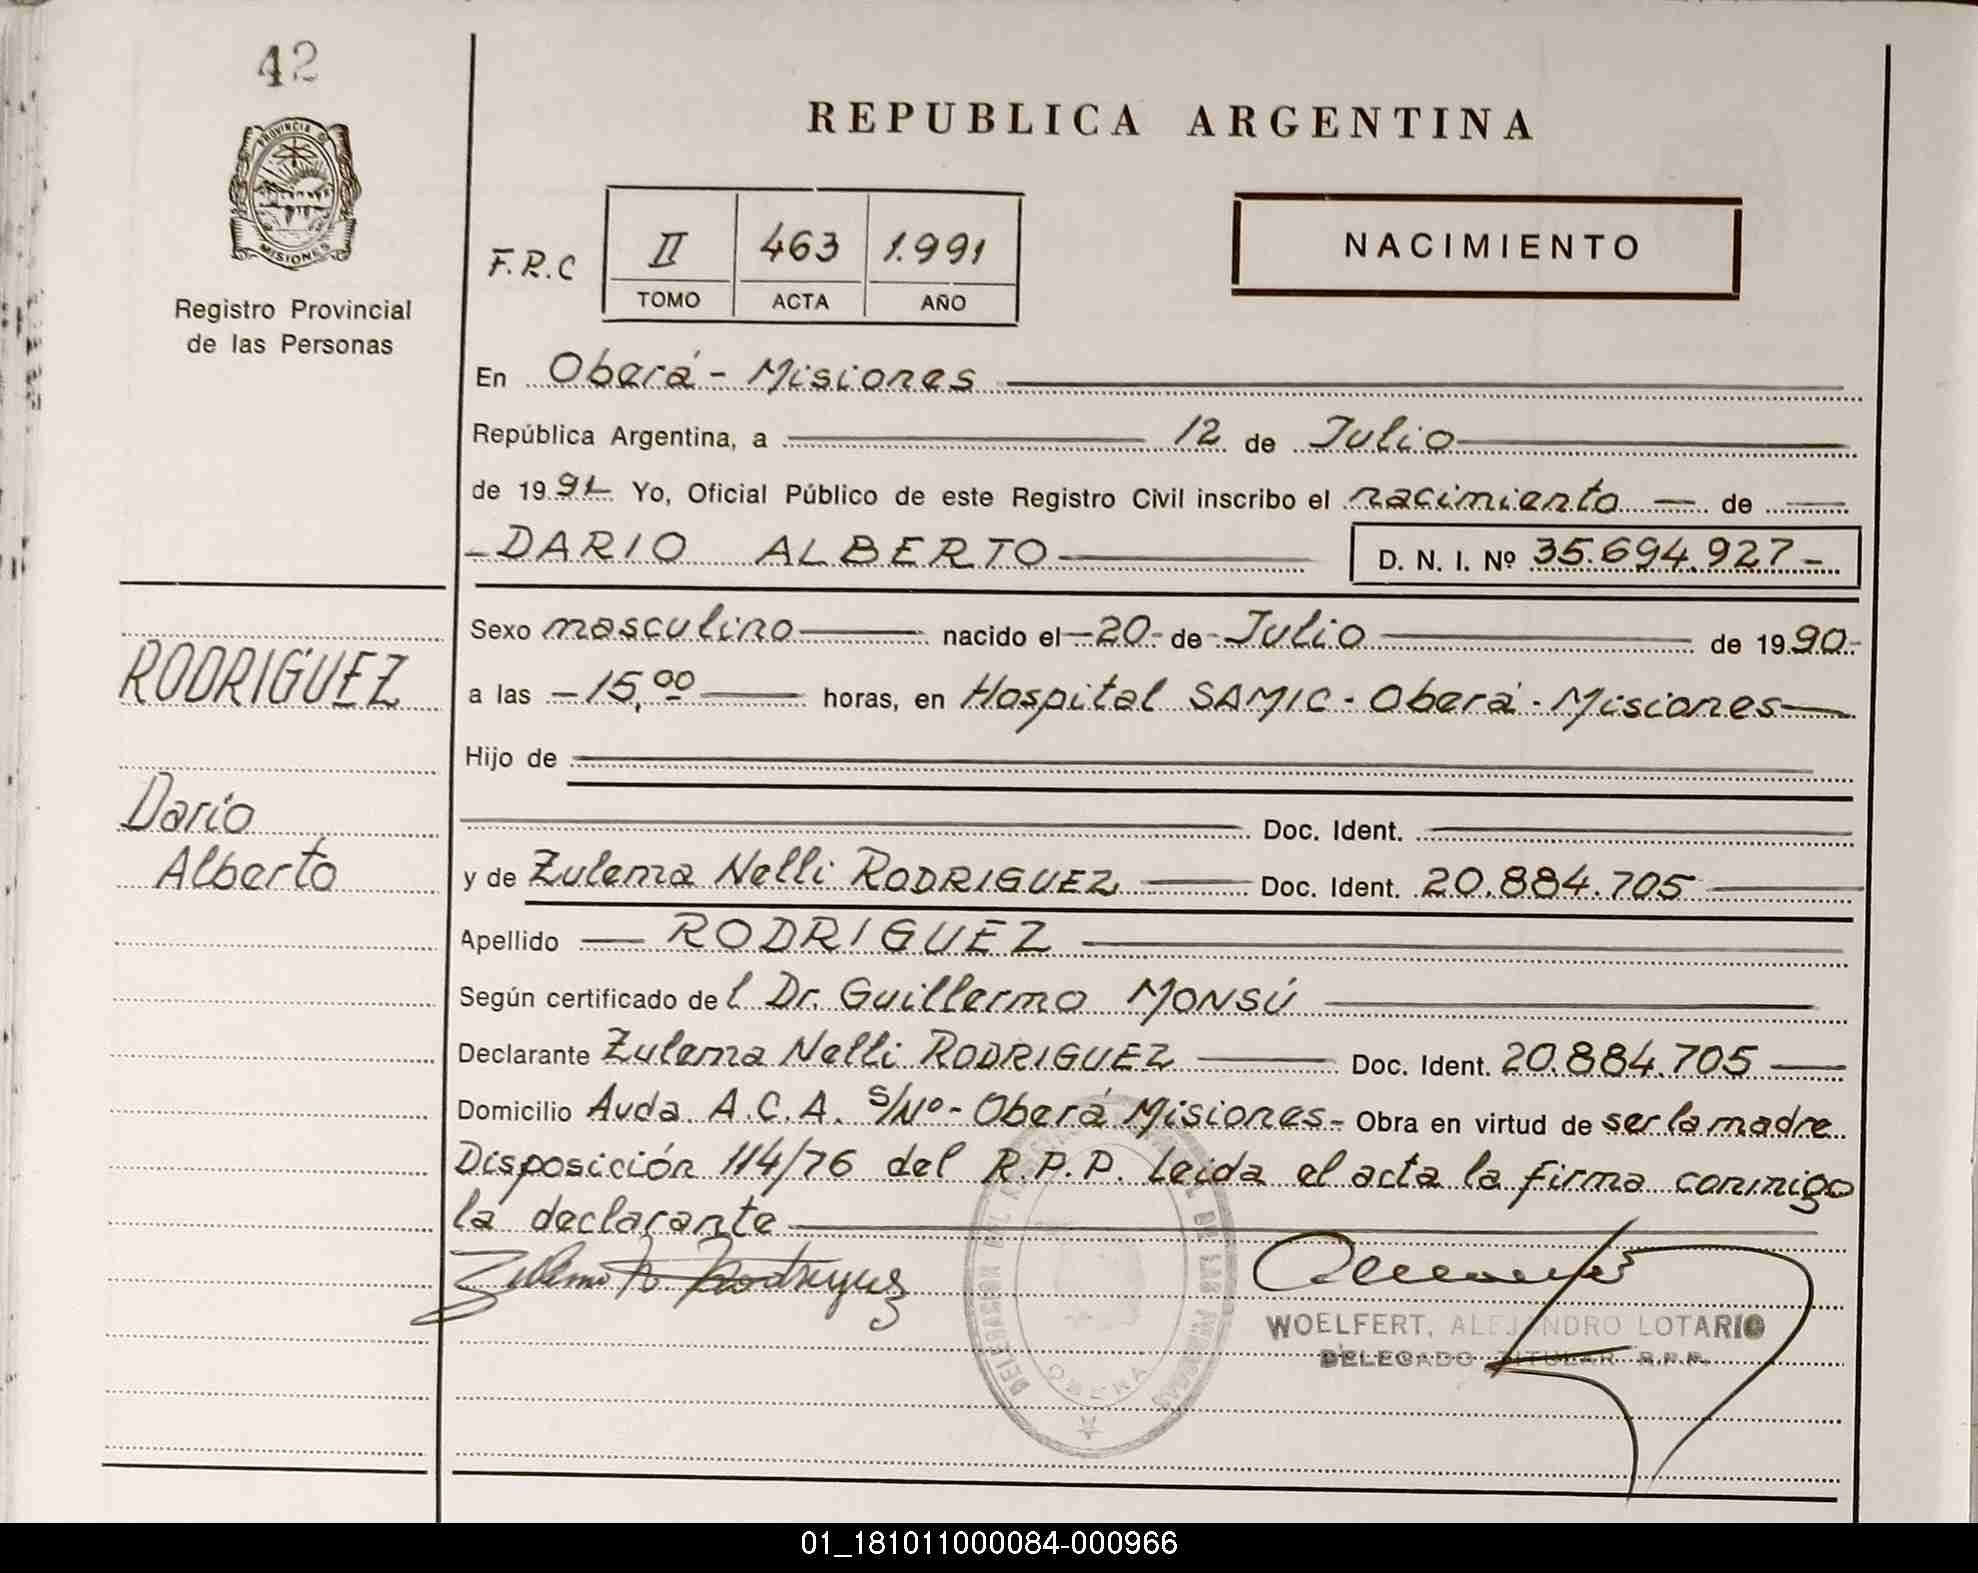 42
PROVINCIA D
MISIONES
Registro Provincial
de las Personas
REPUBLICA ARGENTINA
F.R.C
II 463 1.991
TOMO ACTA AÑO
NACIMIENTO
En Oberá - Misiones
República Argentina, a 12 de Julio
de 1991 Yo, Oficial Público de este Registro Civil inscribo el nacimiento — de —
- DARIO ALBERTO — D. N. I. Nº 35.694.927 -
Sexo masculino — nacido el - 20 - de - Julio — de 1990 -
a las - 15,00 — horas, en Hospital SAMIC - Oberá - Misiones —
Hijo de —
— Doc. Ident. —
y de Zulema Nelli RODRIGUEZ — Doc. Ident. 20.884.705 —
Apellido — RODRIGUEZ —
Según certificado de l Dr. Guillermo MONSÚ —
Declarante Zulema Nelli RODRIGUEZ — Doc. Ident. 20.884.705 —
Domicilio Avda. A.C.A. S/Nº - Oberá Misiones - Obra en virtud de ser la madre
Disposición 114/76 del R.P.P. Leida el acta la firma conmigo
la declarante —
RODRIGUEZ
Dario
Alberto
Zulema N. Rodriguez
WOELFERT, ALEJANDRO LOTARIO
DELEGADO TITULAR R.P.P.
DELEGACION DE LAS PERSONAS
OBERA
01_181011000084-000966